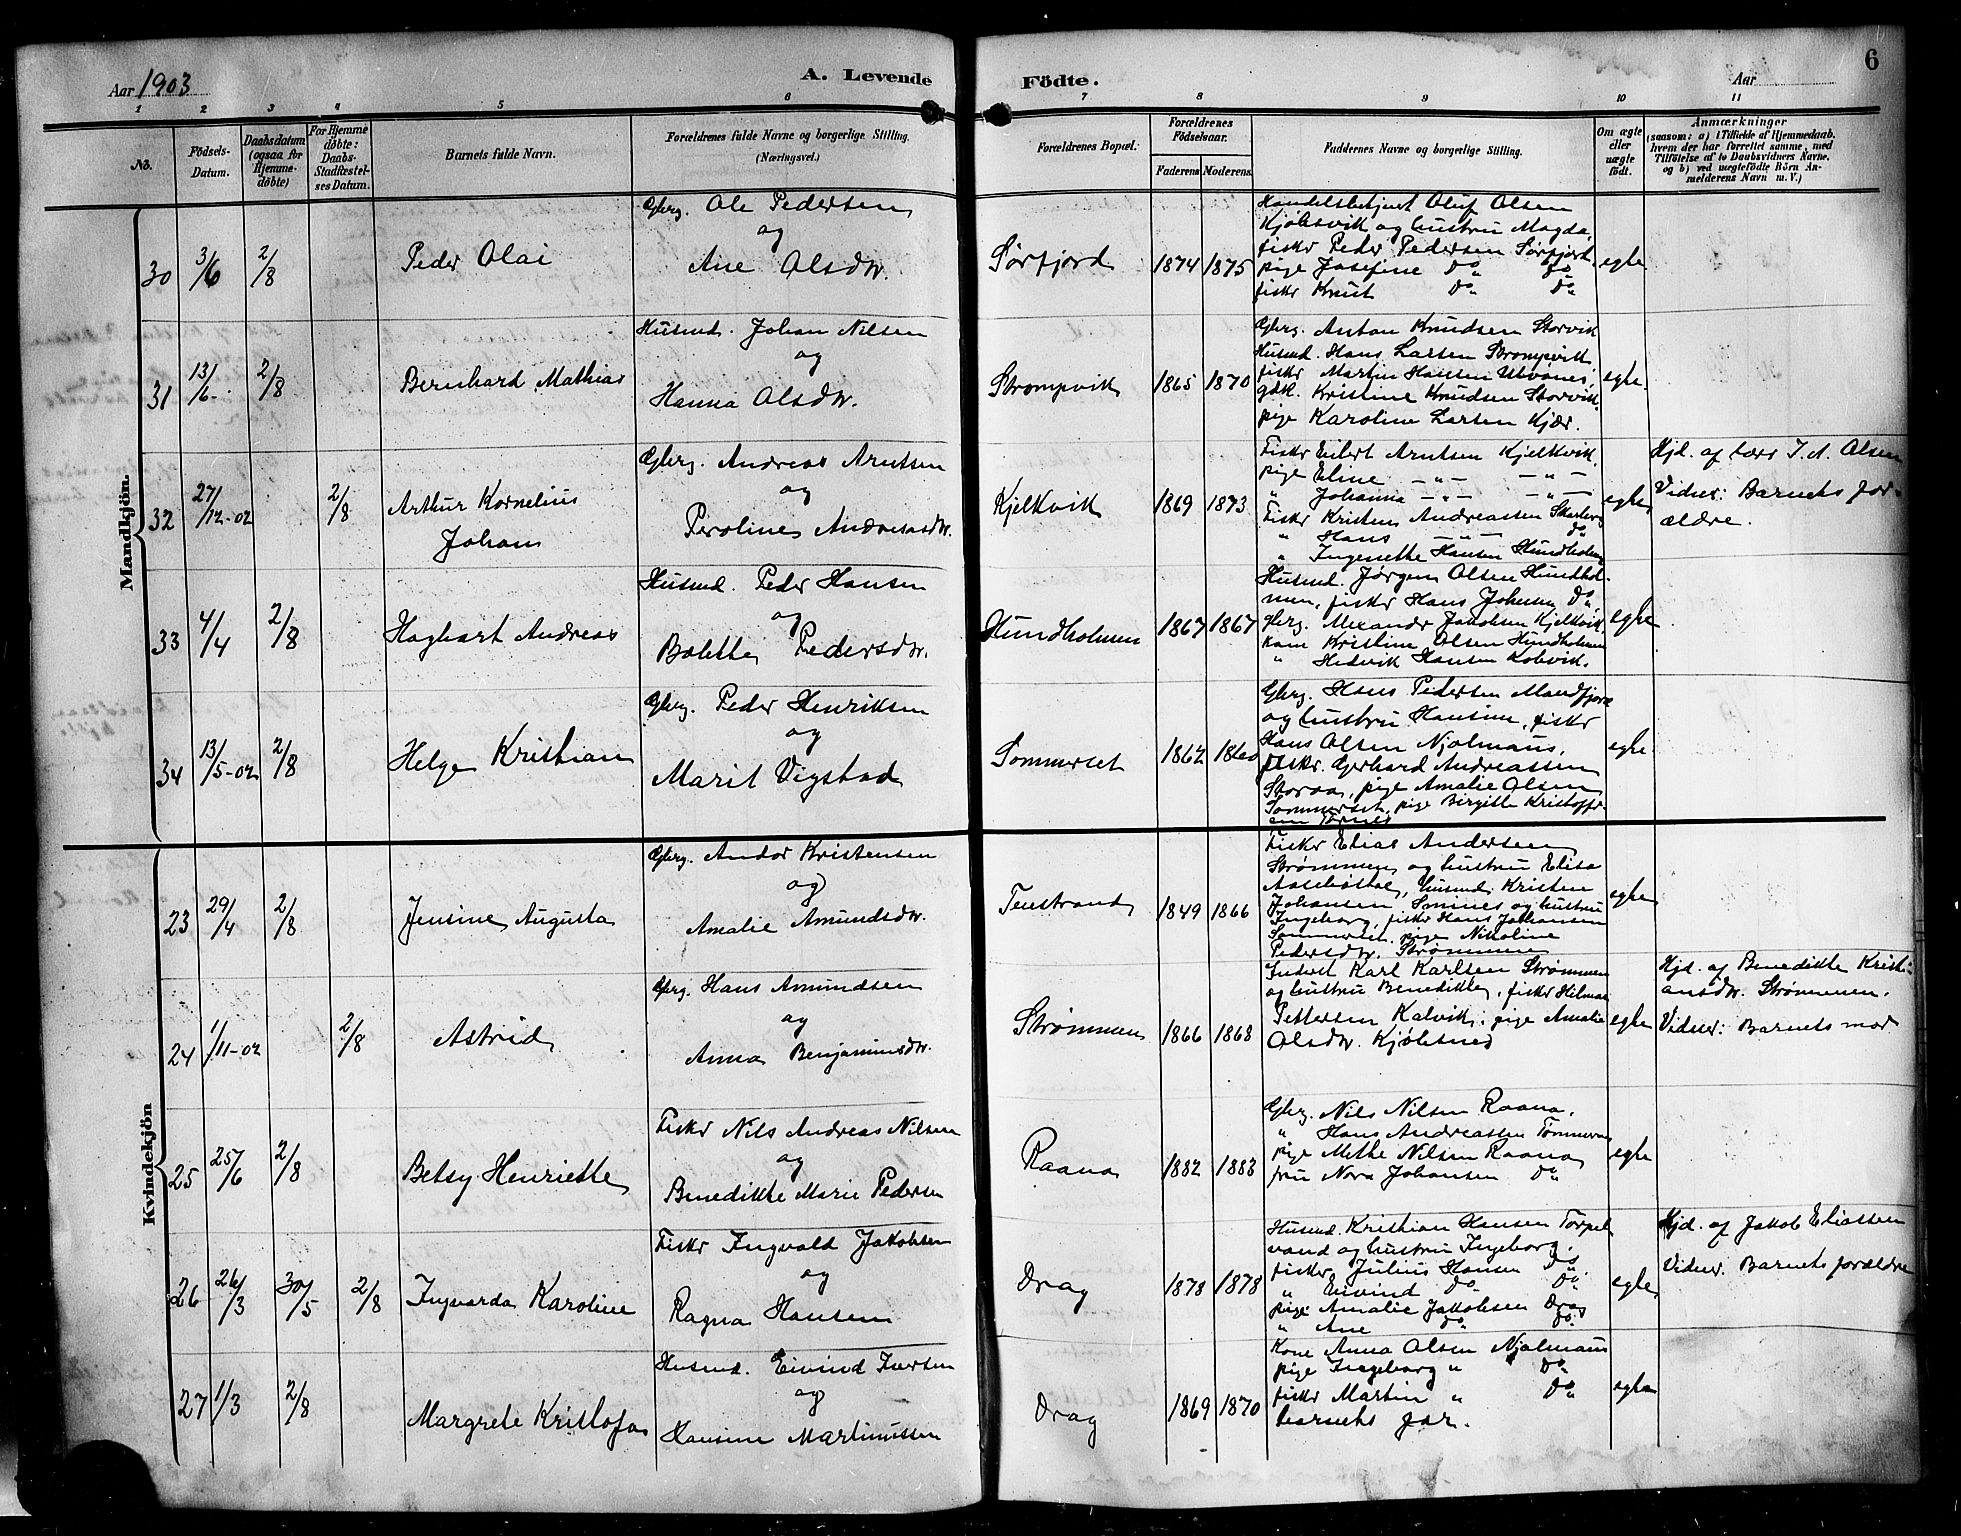 Aar 1903
A. Levende
Födte.
Aar
6
1 2 3 4 5 6 7 8 9 10 11
No.
Födsels-
Datum.
Daabsdatum
(ogsaa for
Hjemme-
döbte)
For Hjemme
döbte:
Daabs-
Stadfestel-
ses Datum.
Barnets fulde Navn.
Forældrenes fulde Navne og borgerlige Stilling.
(Næringsvei.)
Forældrenes Bopæl.
Forældrenes
Födselsaar.
Faderens
Moderens
Faddernes Navne og borgerlige Stilling.
Om ægte
eller
uægte
födt.
Anmærkninger
(saasom: a) i Tilfælde af Hjemmedaab,
hvem der har forrettet samme, med
Tilföielse af to Daabsvidners Navne,
og b) ved uægtefödte Börn An-
melderens Navn m. V.)
Mandkjön.
30 3/6 2/8
Peder Olai
Gbrg. Ole Pedersen
og
Ane Olsdtr.
Sørfjord 1874 1875
Handelsbetjent Oluf Olsen
Kjøbsvik og hustru Magda,
fiskr Peder Pedersen Sørfjord.
pige Josefine Do Do
fiskr Knut Do Do
egte
31 13/6 2/8
Bernhard Mathias
Husmd. Johan Nilsen
og
Hanna Olsdtr.
Strompvik 1865 1870
Gbrg. Anton Knudsen Storvik
Husmd. Hans Larsen Strompvik
fiskr Martin Hansen
gdk. Kristine Knudsen Storvik.
pige Karoline Larsen Kjær.
egte.
32 27/12-02 2/8
Arthur Kornelius
Johan
Gbrg. Andreas Arntsen
og
Peroline Andreasdtr.
Kjelkvik 1869 1873
Fiskr Eilert Arntsen Kjelkvik.
pige Eline — " — — " —
" Johanna — " — — " —
Fiskr Kristen Andreassen Skarberg
" Hans — " — Do
" Ingenette Hansen Hundholmen
egte,
Hjd. af lærer J. A. Olsen
Vidner: Barnets for-
ældre.
33 4/4 2/8
Hagbart Andreas
Husmd. Peder Hansen
og
Bolette Pedersdtr.
Hundholmen 1867 1867
Husmd. Jørgen Olsen Hundhol-
men, fiskr Hans Johnsen Do
Gbrg. Alexander Jakobsen Kjelkvik,
kone Kristine Olsen Hundholmen
" Hedvik Hansen Kobvik.
egte
34 13/5-02 2/8
Helge Kristian
Gbrg. Peder Henriksen
og
Marit Vigstad
Sommerset 1862 1860
Gbrg. Hans Pedersen Mandfjord
og hustru Hansine, fiskr
Hans Olsen Njalmaus,
fiskr. Gerhard Andreassen
Storaa, pige Amalie Olsen
Sommerset, pige Birgitte Kristoffer
sen Tørnes
egte
Kvindekjön
23 29/4 2/8
Jensine Augusta
Gbrg. Andor Kristensen
og
Amalie Amundsdtr.
Teustrand 1849 1866
Fiskr Elias Andersen
Strømmen og hustru Elisa
husmd. Kristen
Johansen og hustru
Ingeborg, fiskr Hans Johansen
Sommerset, pige Nikoline
Pedersdtr. Strømmen
egte
24 1/11-02 2/8
Astrid
Gbrg. Hans Amundsen
og
Anna Benjaminsdtr.
Strømmen 1866 1868
Inderst Karl Karlsen Strømmen
og hustru Benedikte, fiskr Hilmar
Pettersen Kalvik, pige Amalie
Olsdtr. Kjøbsnes
egte
Hjd. af Benedikte Kristi-
ansdtr. Strømmen.
Vidner: Barnets mor
25 25/6 2/8
Betsy Henriette
Fiskr Nils Andreas Nilsen
og
Benedikte Marie Pedersen
Raana 1882 1883
Gbrg. Nils Nilsen Raana,
" Hans Andreassen Tømmernes
pige Methe Nilsen Raana
fru Nora Johansen Do
egte
26 26/3 30/5 2/8
Ingvarda Karoline
Fiskr Ingvald Jakobsen
og
Ragna Hansen
Drag 1878 1878
Husmd. Kristian Hansen Tørpel
vand og hustru Ingeborg.
fiskr Julius Hansen Do
" Eivind Do Do
pige Amalie Jakobsen Drag
" Ane Do Do
egte
Hjd. af Jakob Eliassen
Vidner: Barnets forældre
27 1/3 2/8
Margrete Kristofa
Husmd. Eivind Iversen
og
Hansine Martinussen
Drag 1869 1870
Kone Anna Olsen Njalmaus
pige Ingeborg " Do
fiskr Martin " Do
barnets far.
egte